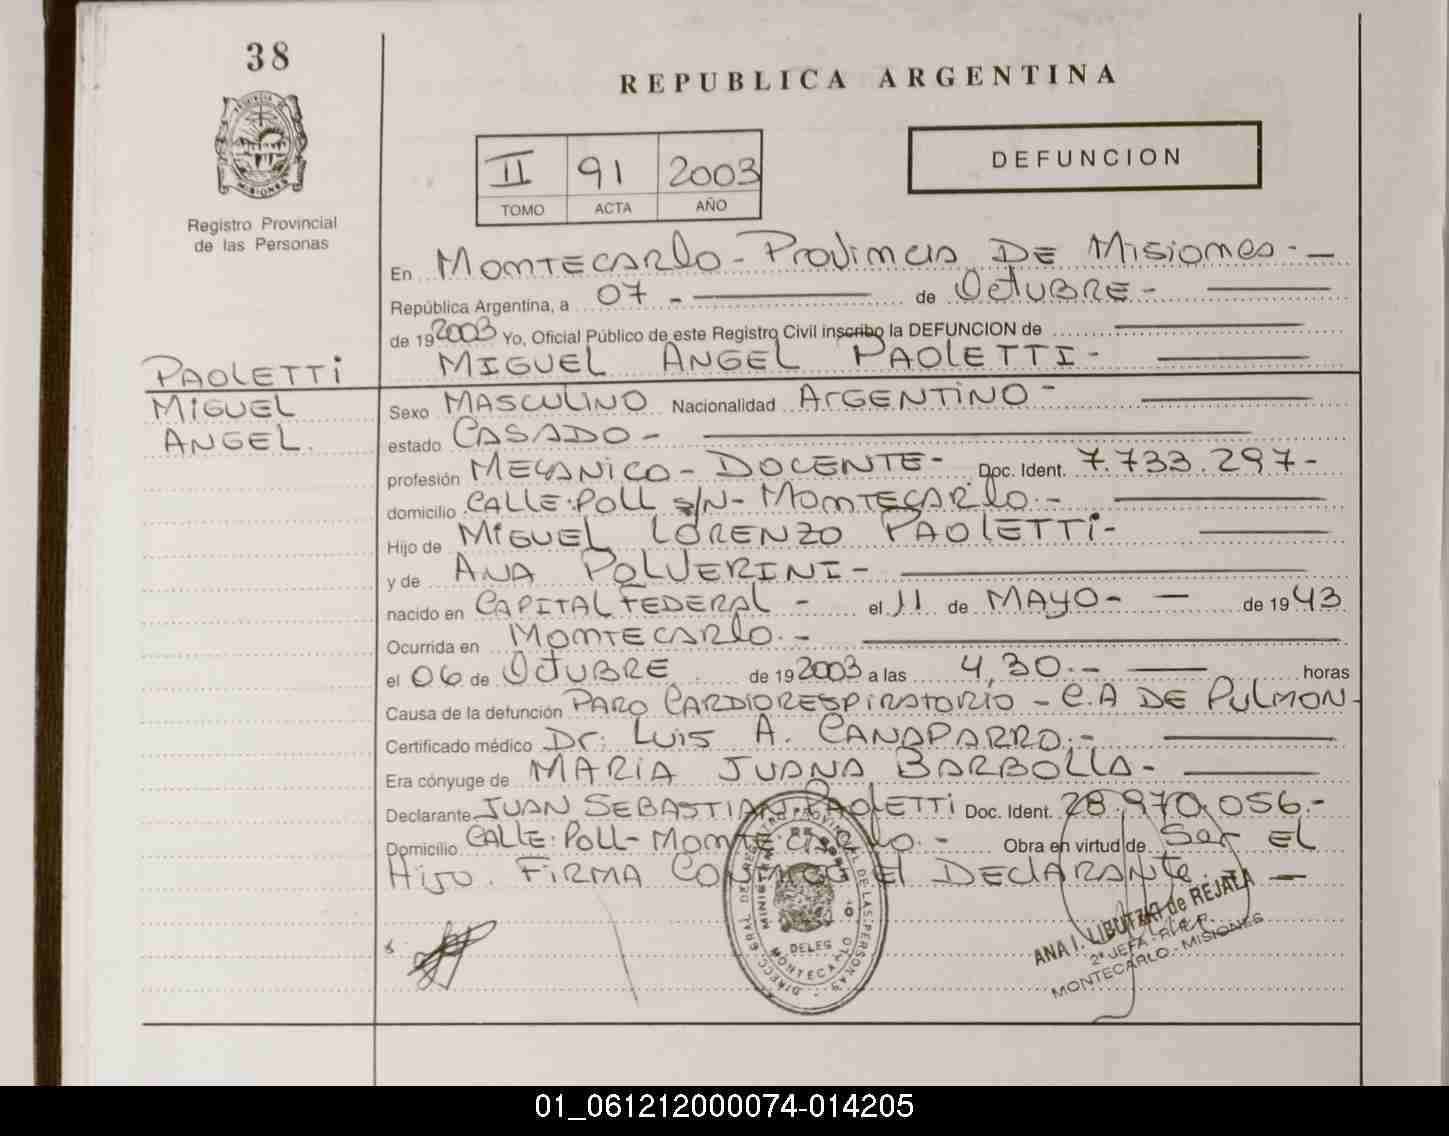 38
REPUBLICA ARGENTINA
II 91 2003
TOMO ACTA AÑO
DEFUNCION
Registro Provincial
de las Personas
En MONTECARLO - PROVINCIA DE MISIONES -
República Argentina, a 07 - de OCTUBRE -
de 19 2003 Yo, Oficial Público de este Registro Civil inscribo la DEFUNCION de
MIGUEL ANGEL PAOLETTI -
PAOLETTI
MIGUEL
ANGEL.
Sexo MASCULINO Nacionalidad ARGENTINO -
estado CASADO -
profesión MECANICO - DOCENTE - Doc. Ident. 7.733.297-
domicilio CALLE: POLL S/N - MONTECARLO. -
Hijo de MIGUEL LORENZO PAOLETTI-
y de ANA POLVERINI -
nacido en CAPITAL FEDERAL - el 11 de MAYO - - de 19 43
Ocurrida en MONTECARLO. -
el 06 de OCTUBRE de 19 2003 a las 4,30. - horas
Causa de la defunción PARO CARDIORESPIRATORIO - C.A DE PULMON -
Certificado médico Dr. LUIS A. CANAPARRO. -
Era cónyuge de MARIA JUANA BARBOLLA -
Declarante JUAN SEBASTIAN PAOLETTI Doc. Ident. 28.970.056.-
Domicilio CALLE: POLL - MONTECARLO. - Obra en virtud de Ser EL
HIJO. FIRMA CONMIGO El DECLARANTE. - -
DELEG
MONTECARLO
ANA I. LIBUTZKI de REJALA
2ª JEFA - R.P.P.
MONTECARLO - MISIONES
01_061212000074-014205